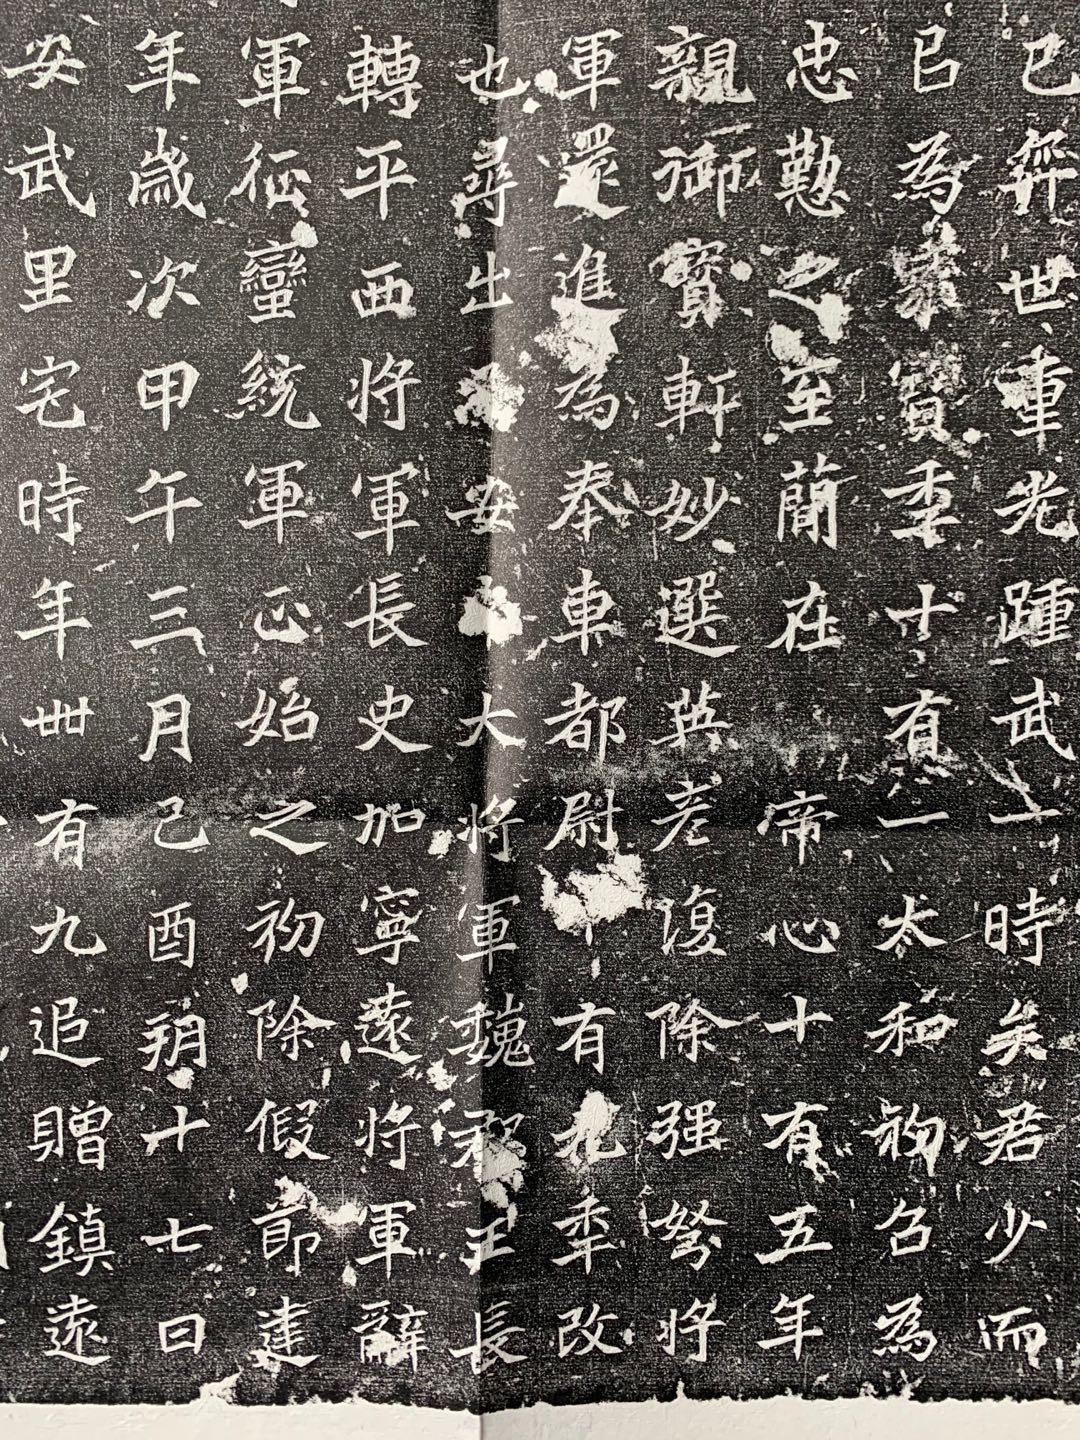 已弈世重光踵武一時矣君少而
㠯為寶秊十有一太和初召為
忠懃之至簡在帝心十有五年
親御寶軒妙選英彥復除强弩將
軍還進為奉車都尉有九秊改
也尋出安大將軍魏王長
轉平西將軍長史加寧遠將軍辭
軍征蠻統軍正始之初除假節建
年歲次甲午三月己酉玥十七日
安武里宅時年卌有九追贈鎮遠